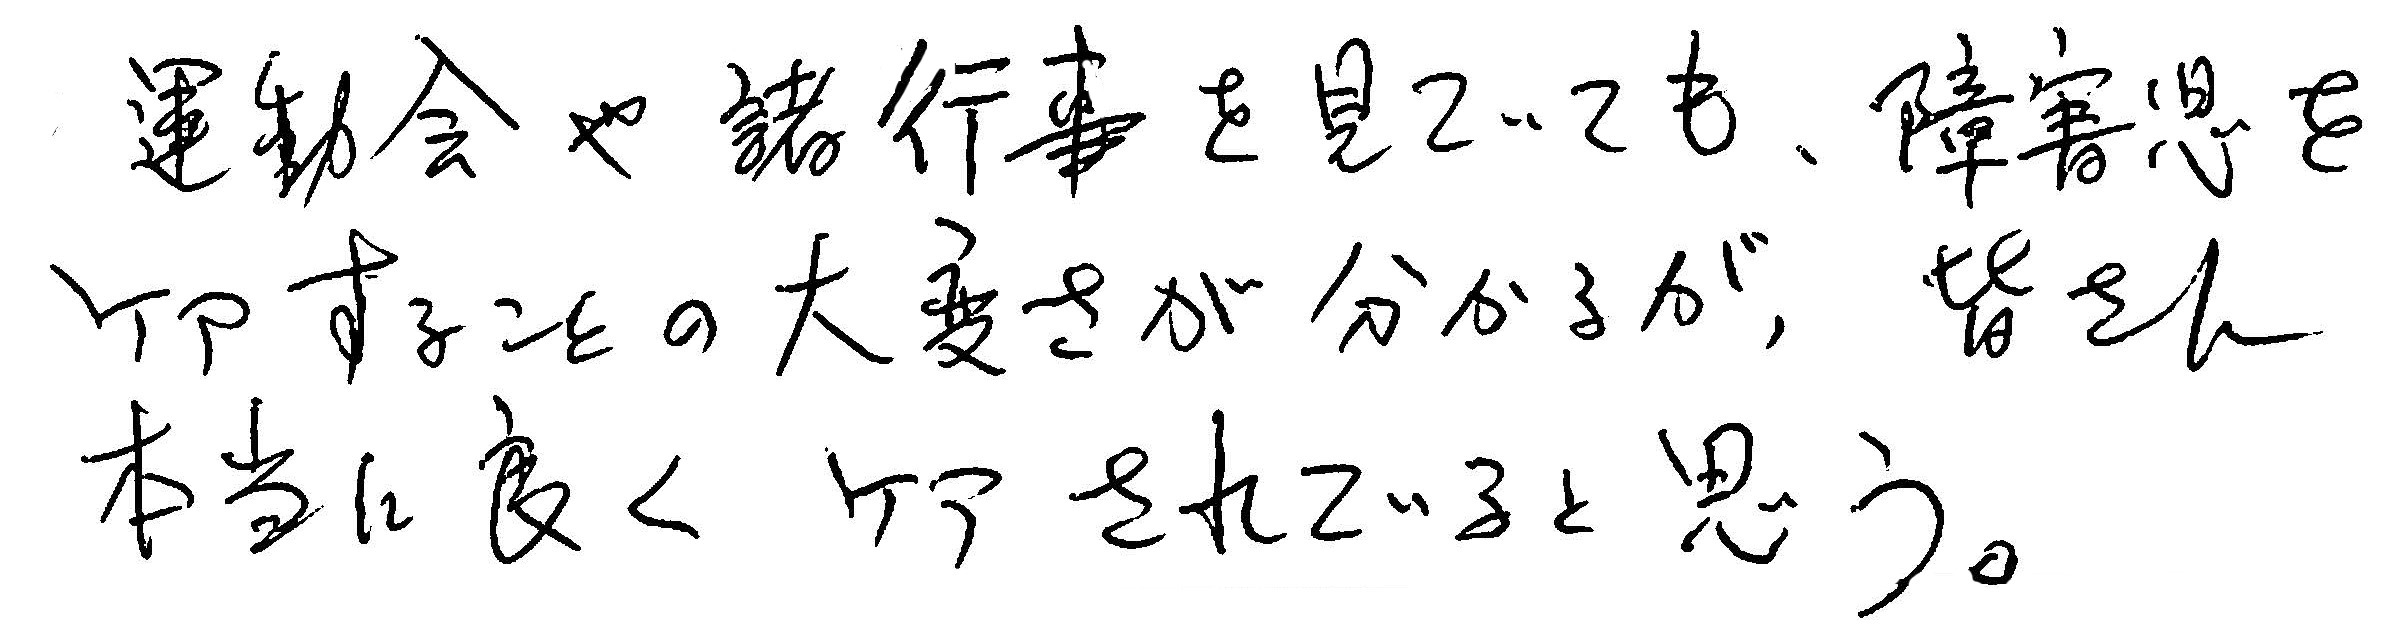 運動会や諸行事を見ていても、障害児を
ケアすることの大変さが分かるが、皆さん
本当に良くケアされていると思う。